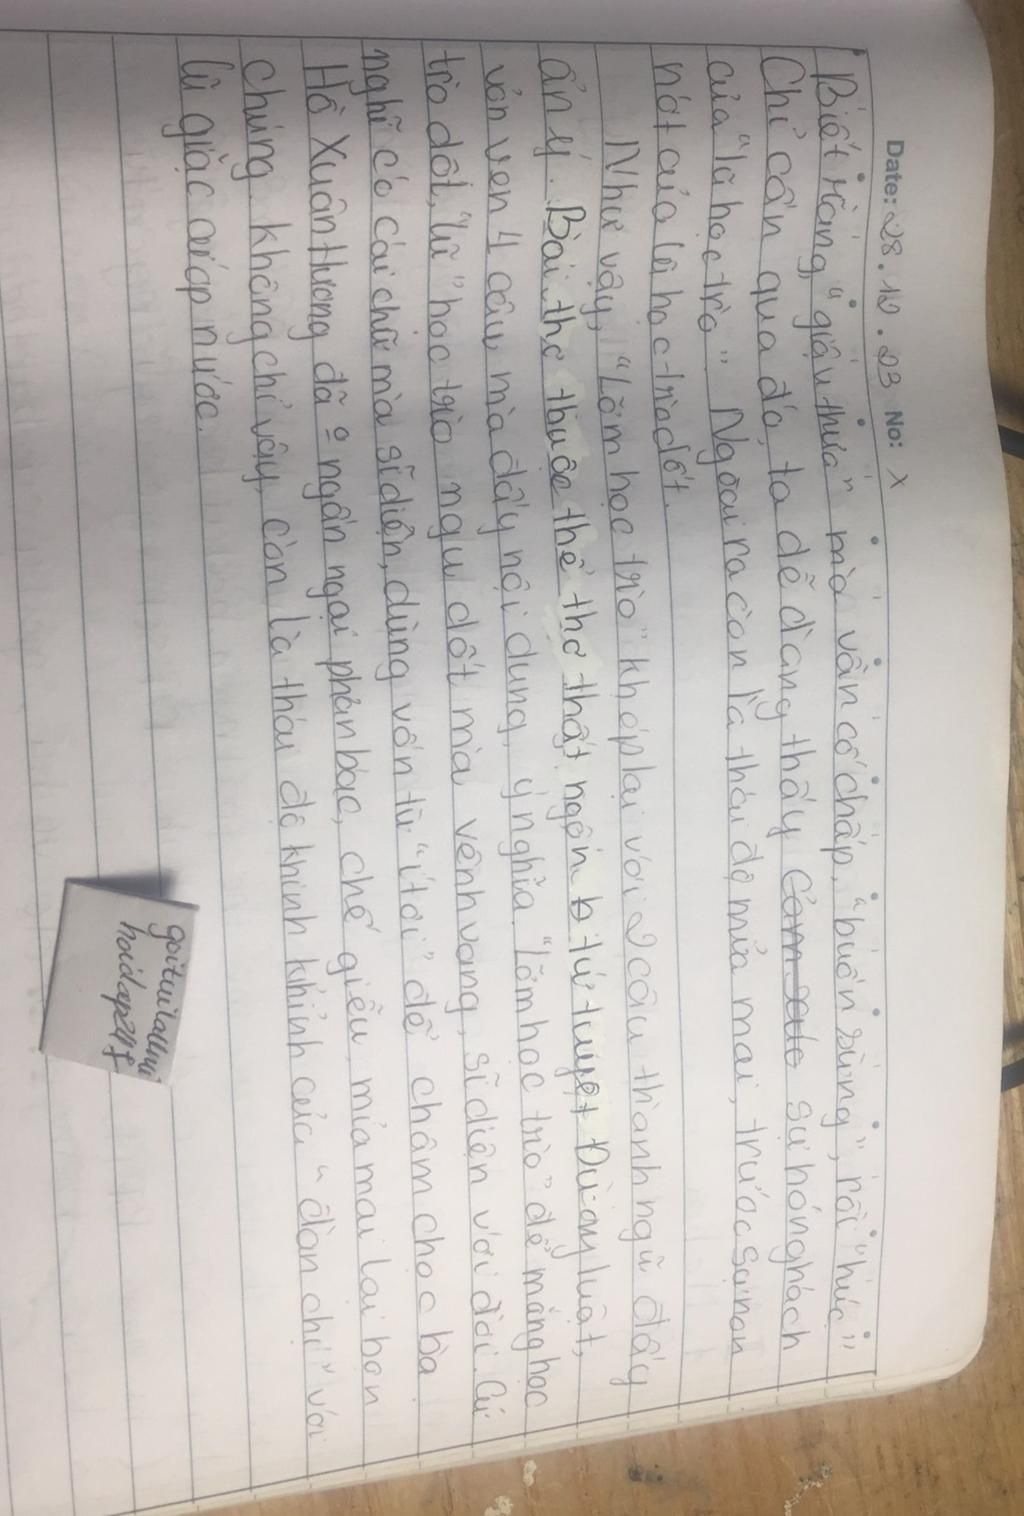 Date: 28.12.23 No: X
Biết rằng, "giậu thưa" mà vẫn cố chấp, "buồn sừng", rồi "húc"
Chỉ cần qua đó, ta dễ dàng thấy sự hóng hách
của "lũ học trò". Ngoài ra còn là thái độ mỉa mai, trước sự non
nớt của lũ học trò dốt.
Như vậy, "Lỡm học trò" khép lại với 2 câu thành ngữ đầy
ẩn ý. Bài thơ thuộc thể thơ thất ngôn tứ tuyệt Đường luật,
vỏn vẹn 4 câu, mà đầy nội dung, ý nghĩa. "Lỡm học trò" để mắng học
trò dốt, "lũ" học trò ngu dốt mà vênh vang, sĩ diện với đời. Cứ
nghĩ có cái chữ mà sĩ diện, dùng vốn từ "ít ỏi" để châm chọc bà
Hồ Xuân Hương đã º ngần ngại phản bác, chế giễu, mỉa mai lại bọn
chúng. không chỉ vậy, còn là thái độ khinh khỉnh của "đàn chị" với
lũ giặc cướp nước.
hoidap247